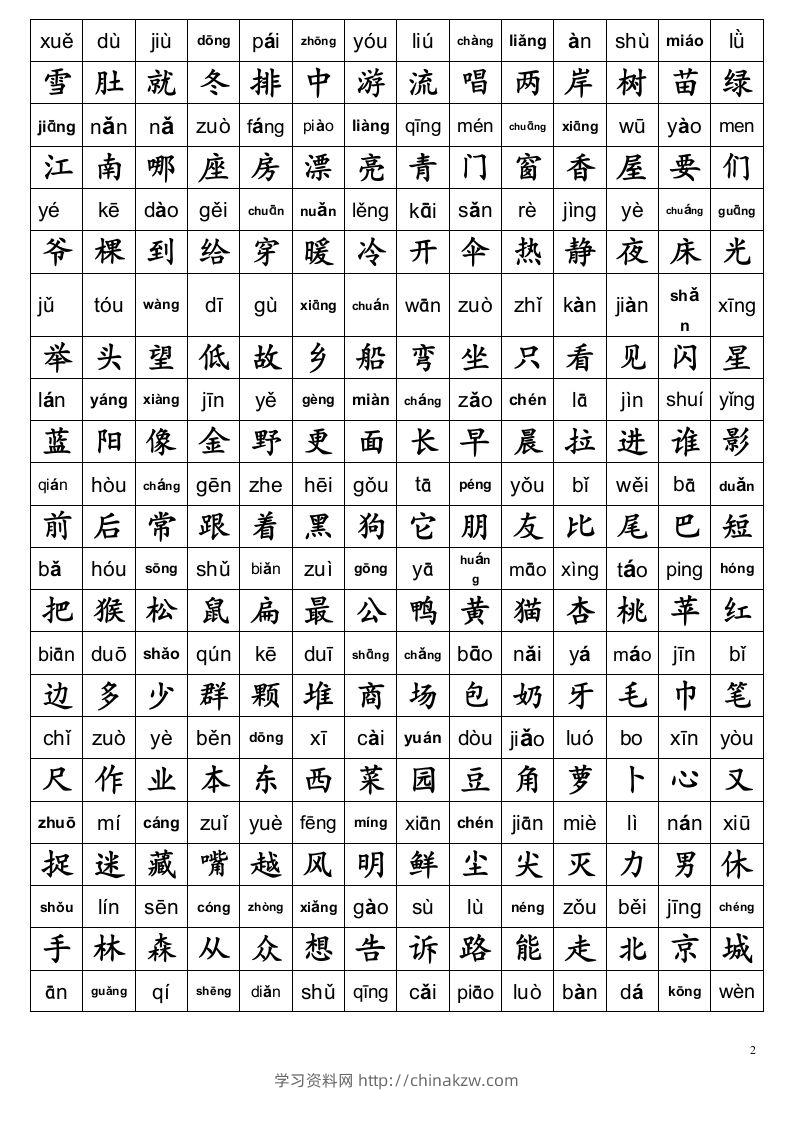 xuě dù jiù dōng pái zhōng yóu liú chàng liǎng àn shù miáo lǜ
雪 肚 就 冬 排 中 游 流 唱 两 岸 树 苗 绿
jiāng nǎn nǎ zuò fáng piào liàng qīng mén chuāng xiāng wū yào men
江 南 哪 座 房 漂 亮 青 门 窗 香 屋 要 们
yé kē dào gěi chuān nuǎn lěng kāi sǎn rè jìng yè chuáng guāng
爷 棵 到 给 穿 暖 冷 开 伞 热 静 夜 床 光
jǔ tóu wàng dī gù xiāng chuán wān zuò zhǐ kàn jiàn shǎn xīng
举 头 望 低 故 乡 船 弯 坐 只 看 见 闪 星
lán yáng xiàng jīn yě gèng miàn cháng zǎo chén lā jìn shuí yǐng
蓝 阳 像 金 野 更 面 长 早 晨 拉 进 谁 影
qián hòu cháng gēn zhe hēi gǒu tā péng yǒu bǐ wěi bā duǎn
前 后 常 跟 着 黑 狗 它 朋 友 比 尾 巴 短
bǎ hóu sōng shǔ biǎn zuì gōng yā huáng māo xìng táo ping hóng
把 猴 松 鼠 扁 最 公 鸭 黄 猫 杏 桃 苹 红
biān duō shǎo qún kē duī shāng chǎng bāo nǎi yá máo jīn bǐ
边 多 少 群 颗 堆 商 场 包 奶 牙 毛 巾 笔
chǐ zuò yè běn dōng xī cài yuán dòu jiǎo luó bo xīn yòu
尺 作 业 本 东 西 菜 园 豆 角 萝 卜 心 又
zhuō mí cáng zuǐ yuè fēng míng xiān chén jiān miè lì nán xiū
捉 迷 藏 嘴 越 风 明 鲜 尘 尖 灭 力 男 休
shǒu lín sēn cóng zhòng xiǎng gào sù lù néng zǒu běi jīng chéng
手 林 森 从 众 想 告 诉 路 能 走 北 京 城
ān guǎng qí shēng diǎn shǔ qīng cǎi piāo luò bàn dá kōng wèn
2
学习资料网 http://chinakzw.com